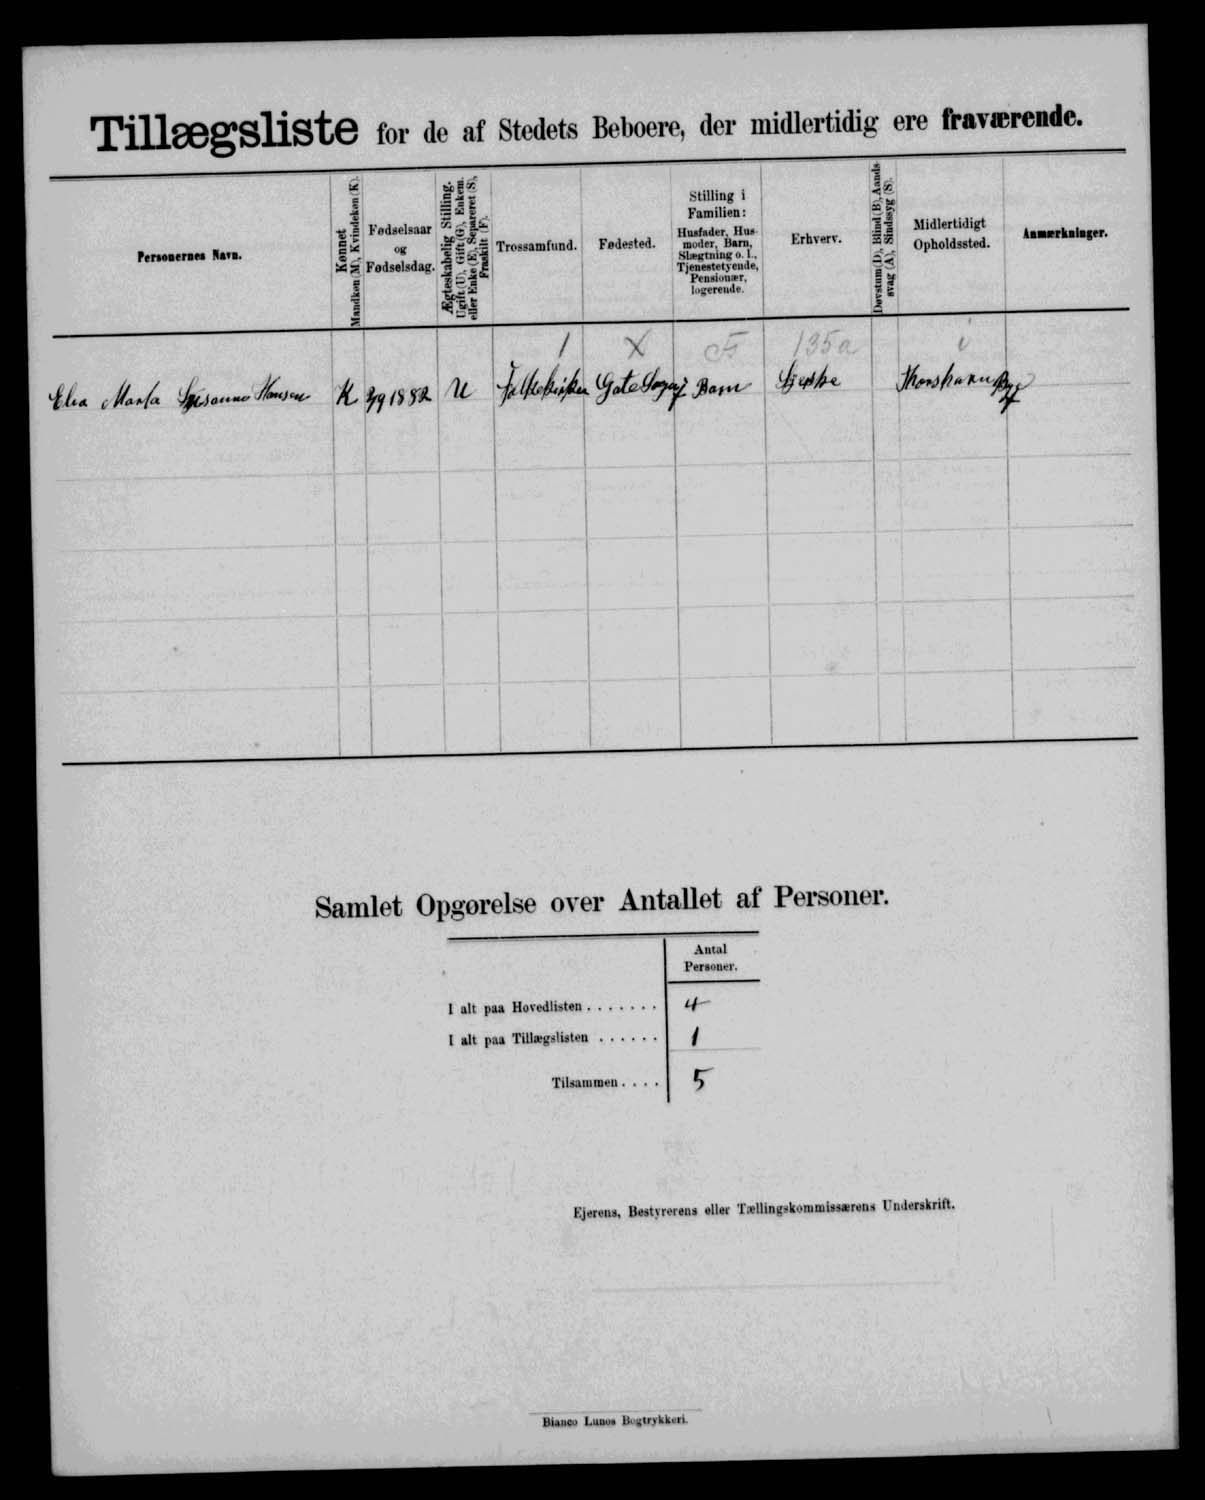 Tillægsliste for de af Stedets Beboere, der midlertidig ere fraværende.
Personernes Navn.
Kønnet
Mandkøn (M), Kvindekøn (K).
Fødselsaar
og
Fødselsdag.
Ægteskabelig Stilling.
Ugift (U), Gift (G), Enkem.
eller Enke (E), Separeret (S),
Fraskilt (F).
Trossamfund.
Fødested.
Stilling i
Familien:
Husfader, Hus-
moder, Barn,
Slægtning o. l.,
Tjenestetyende,
Pensionær,
logerende.
Erhverv.
Døvstum (D), Blind (B), Aands-
svag (A), Sindssyg (S).
Midlertidigt
Opholdssted.
Anmærkninger.
1 X F 135a
Elsa Maria Susanna Hansen K 2/9 1882 U Folkekirken Barn Thorshavn
Samlet Opgørelse over Antallet af Personer.
Antal
Personer.
I alt paa Hovedlisten . . . . . . . 4
I alt paa Tillægslisten . . . . . . 1
Tilsammen . . . . 5
Ejerens, Bestyrerens eller Tællingskommissærens Underskrift.
Bianco Lunos Bogtrykkeri.